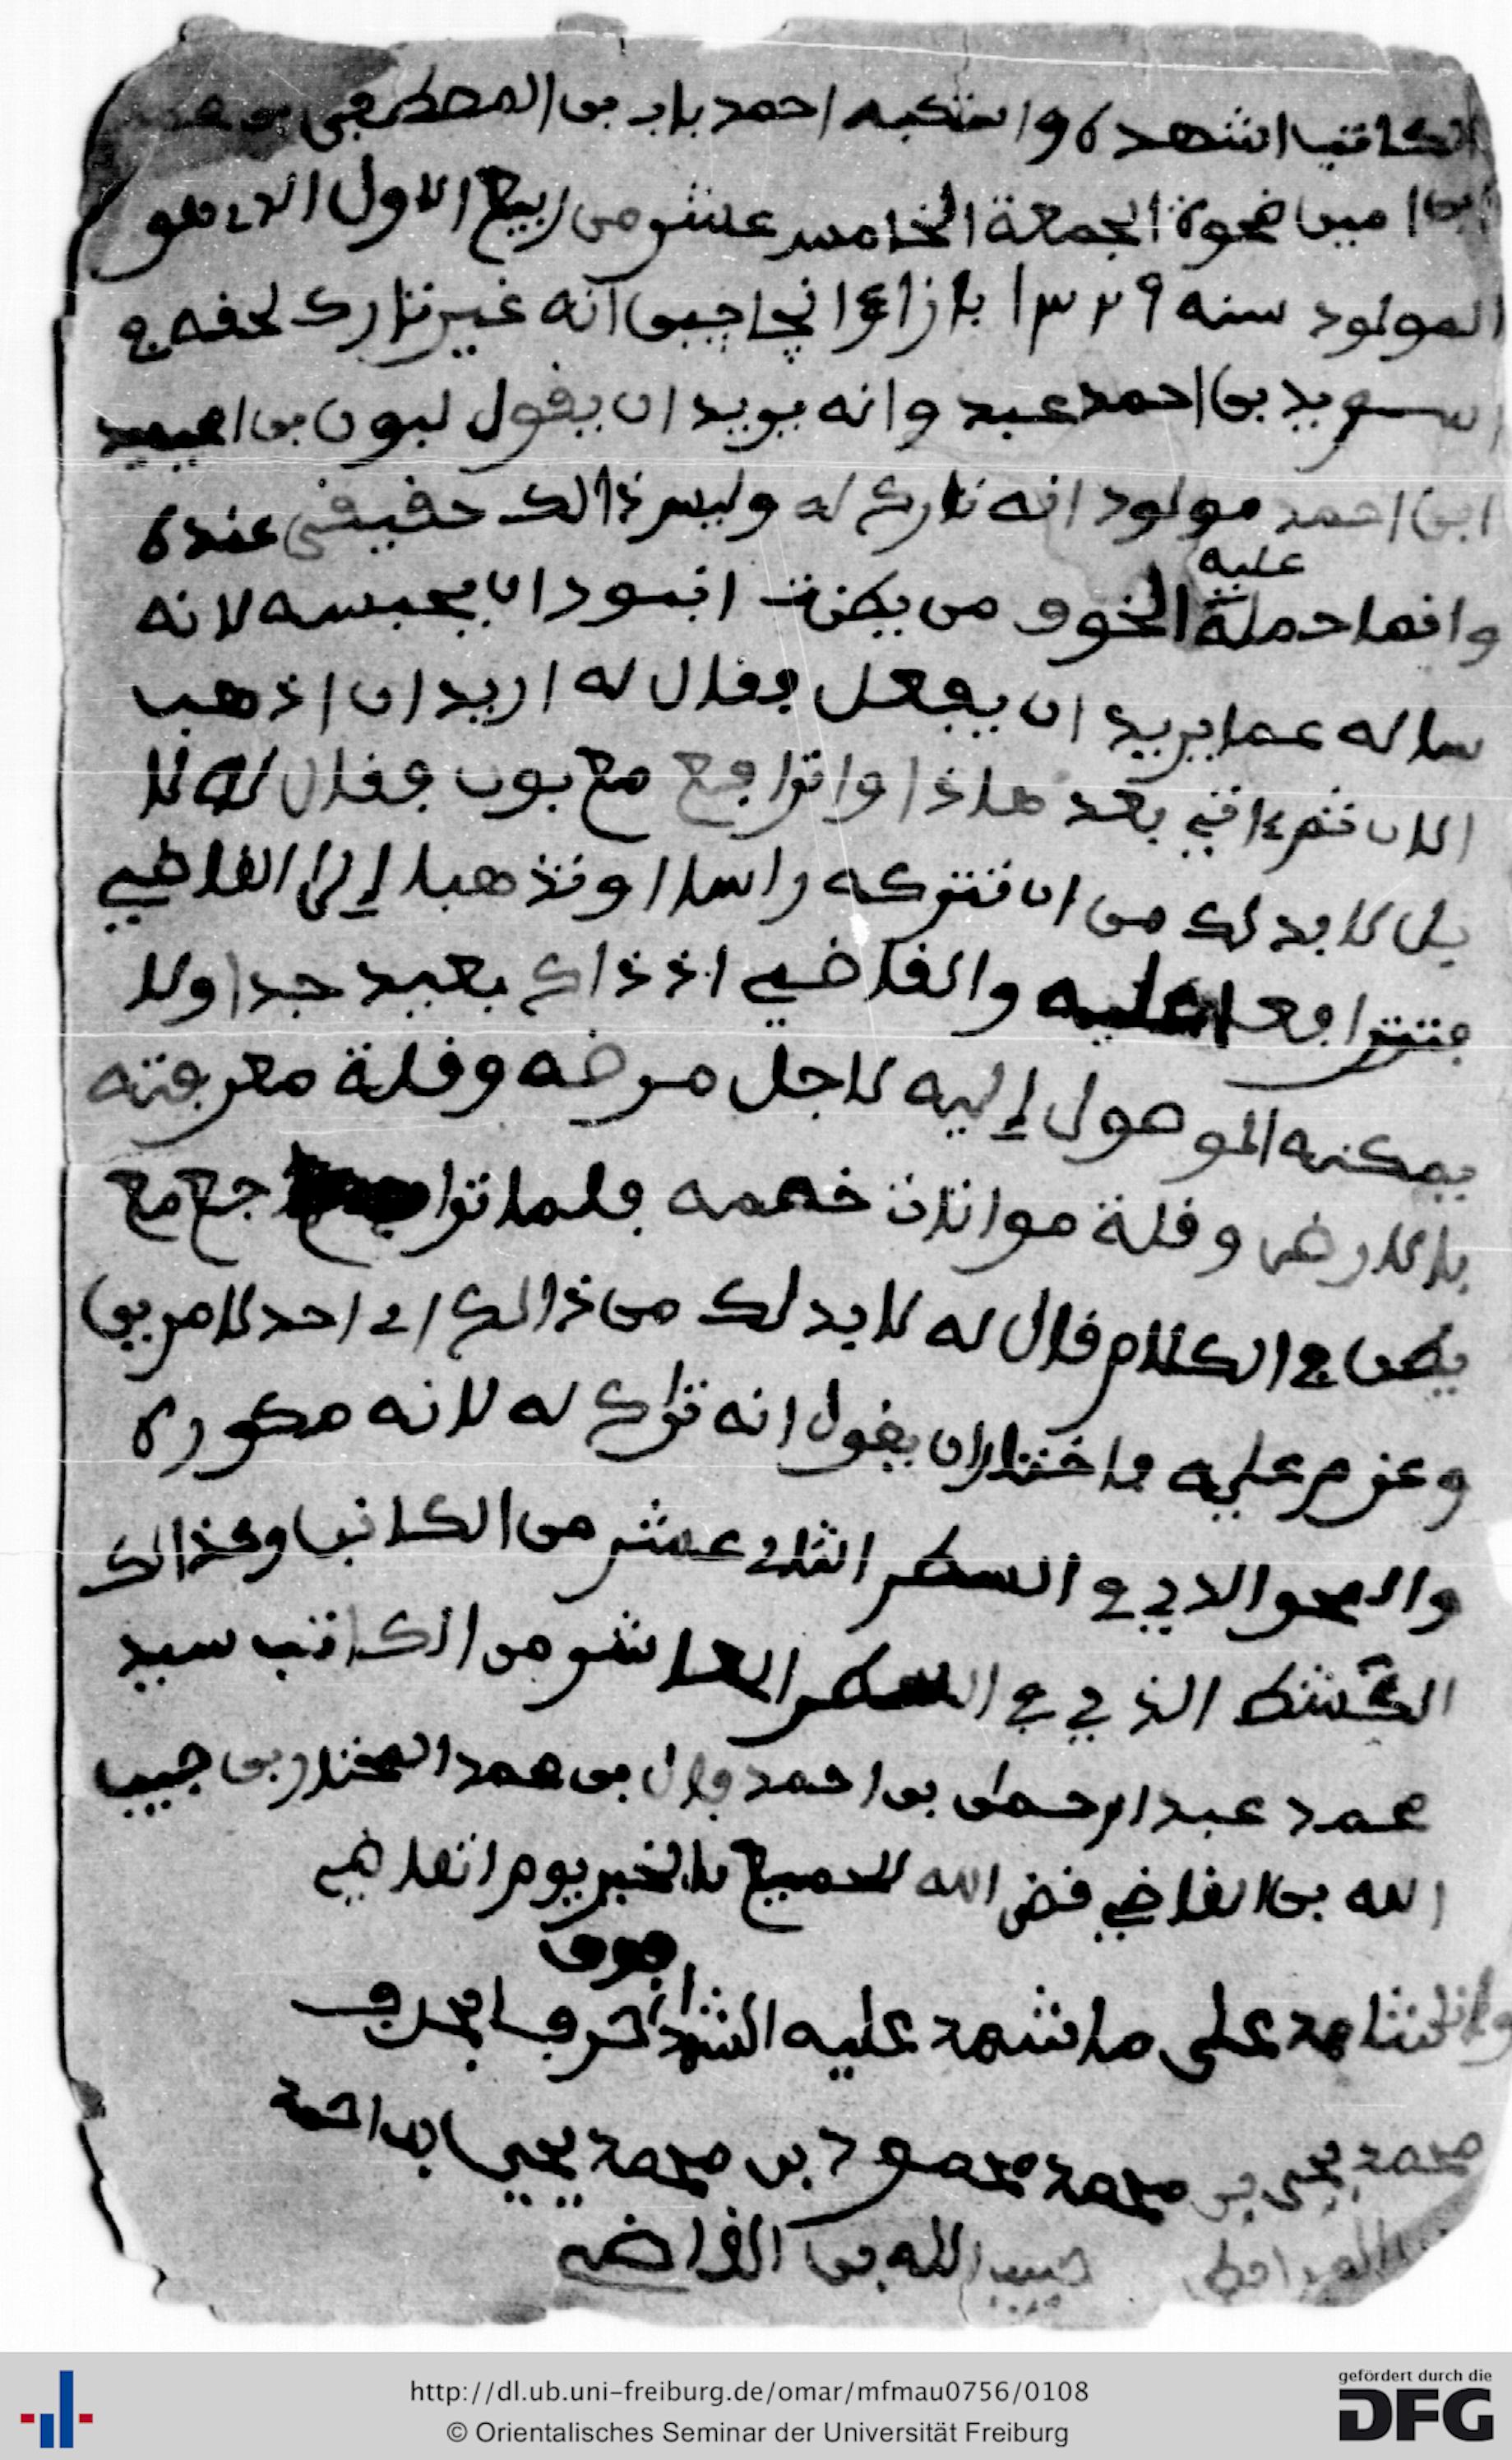 الكاتب اشهده واستكتبه احمد باب بن المصطفى بن
امين ضحوة الجمعة الخامس عشر من ربيع الاول الذي هو
المولود سنه ١٣٢٩ بازاء انه غير تارك لحقه في
بن احمد عبيد وانه يريد ان يقول لبون بن
ابن احمد مولود انه تارك له وليس ذالك حقيقي عنده
عليه
وانما حملة الخوف من يكنت ان يحبسه لانه
ساله عما يريد ان يفعل فقال له اريد ان اذهب
الان ثم ءاتي بعد هاذا واترافع مع بون فقال له لا
بل لا بد لك من ان تتركه راسا او تذهبا إلى القاضي
فتترافعا عليه والقاضي اذ ذاك بعيد جدا ولا
يمكنه الوصول إليه لاجل مرضه وقلة معرفته
بالارض وقلة مواتات خصمه فلما ترا جع مع
يكن في الكلام قال له لا بد لك من ذالك اي احد الامرين
وعزم عليه فاختار ان يقول انه تارك له لانه مكوره
والمحو الذي في السطر الثاني عشر من الكاتب وكذالك
الكشط الذي في السطر العاشر من الكاتب سيد
محمد عبد الرحمن بن احمد فال بن محمد المختار بن حبيب
الله بن القاضي قضى الله للجميع بالخير يوم التقاضي
وانا شاهد على ما شهد عليه الشهدا حرفا بحرف
محمد يحيى بن محمد محمود بن محمد يحيى بن احمد
حبيب الله بن القاضي
http://dl.ub.uni-freiburg.de/omar/mfmau0756/0108
© Orientalisches Seminar der Universität Freiburg
gefördert durch die
DFG